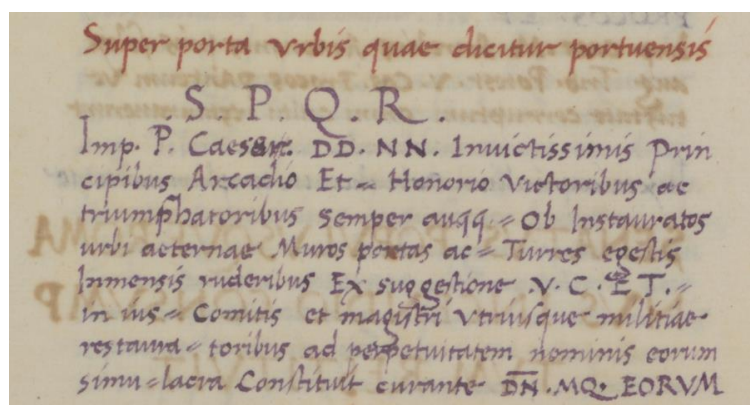 Super porta Urbis quae dicitur portuensis
. S. P. Q. R.
Imp. P. Caesar. DD. NN. Invictissimis Prin
cipibus Arcadio Et = Honorio Victoribus ac
triumphatoribus semper augg = Ob Instauratos
urbi aeternae Muros portas ac = Turres egestis
Inmensis ruderibus Ex suggestione V. C. ET. =
in ius = Comitis et magistri Utriusque militiae
restaura = toribus ad perpetuitatem neminis eorum
simu = lacra Constituit curante DN. MQ. EORVM